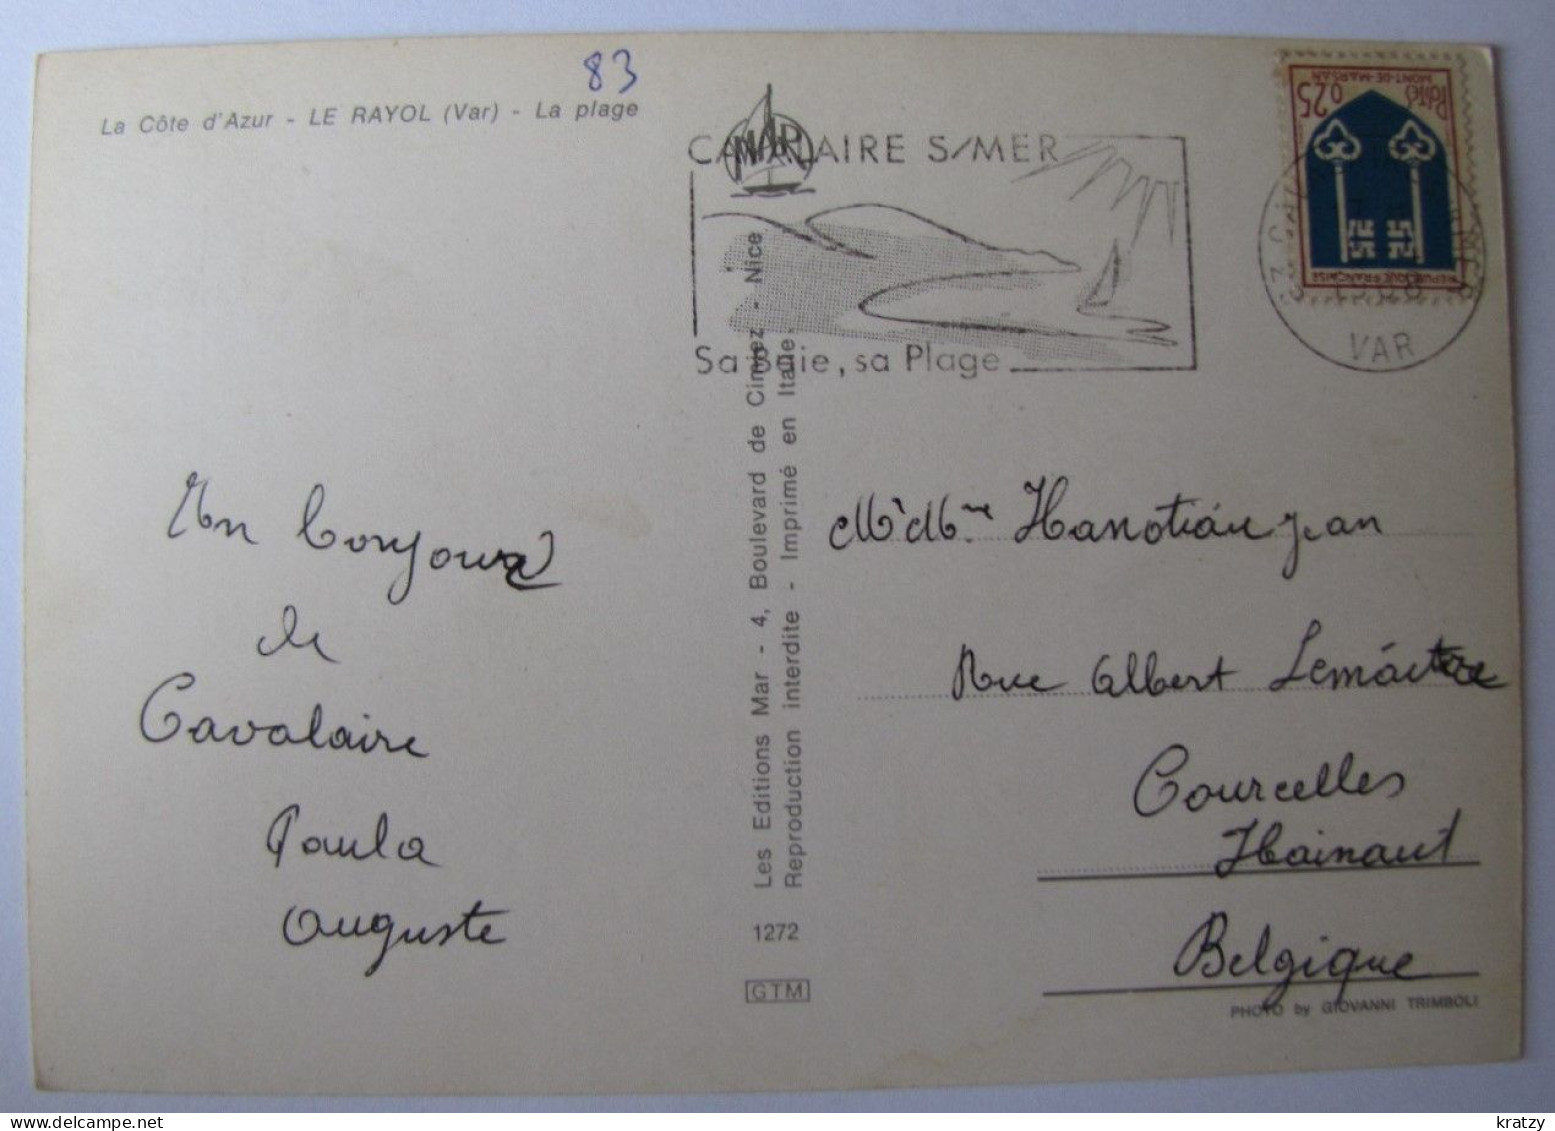 83
La Côte d'Azur - LE RAYOL (Var) - La plage
CAVALAIRE S/MER
MAR
Sa Baie, sa Plage
VAR
Postes
0,25
MONT-DE-MARSAN
REPUBLIQUE FRANÇAISE
Un bonjour
de
Cavalaire
Paula
Auguste
Les Editions Mar - 4, Boulevard de Cimiez - Nice
Reproduction interdite - Imprimé en Italie.
1272
GTM
Mr Mme Hanotiau Jean
Rue Albert Lemaître
Courcelles
Hainaut
Belgique
PHOTO by GIOVANNI TRIMBOLI
www.delcampe.net
kratzy